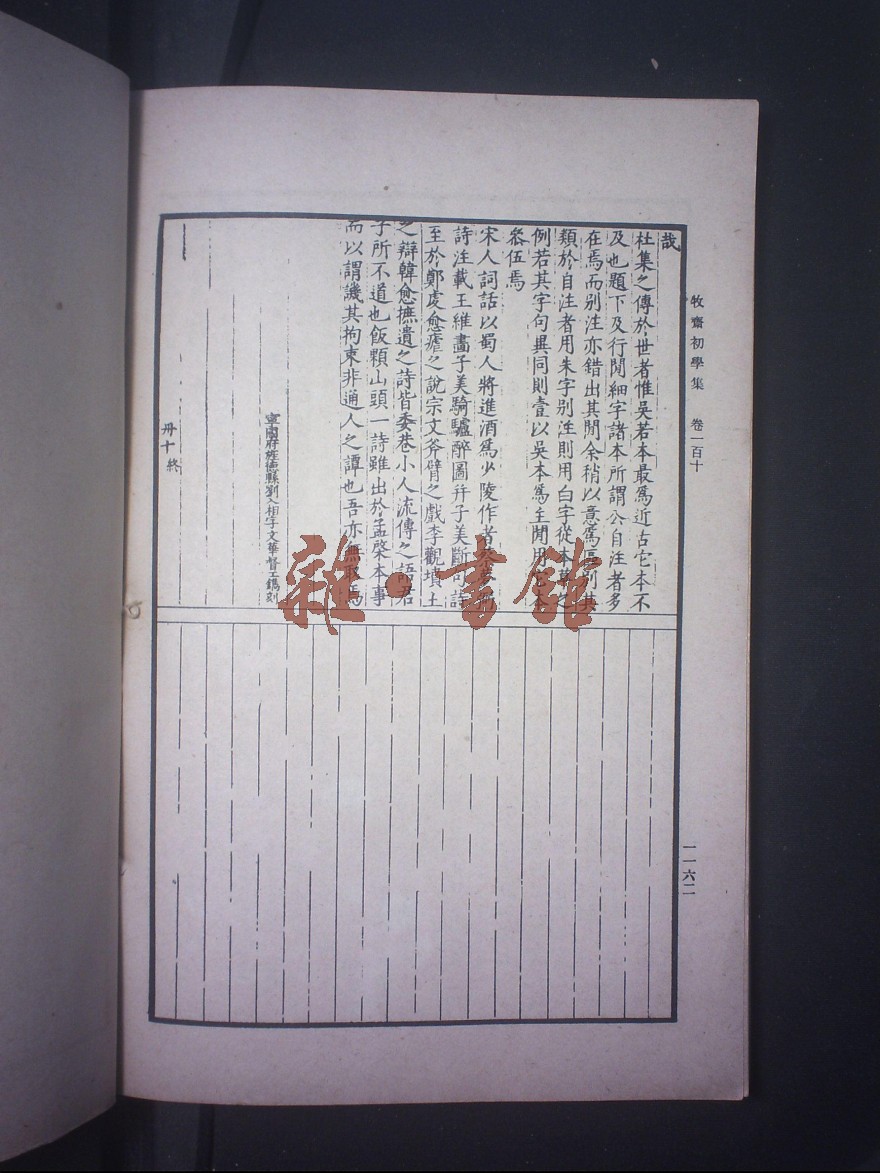 牧齋初學集 卷一百十
一一六二
哉
杜集之傳於世者惟吳若本最爲近古它本不
及也題下及行閒細字諸本所謂公自注者多
在焉而别注亦錯出其閒余稍以意爲區别其
類於自注者用朱字别注則用白字從本草之
例若其字句異同則壹以吳本爲主閒用它本
叅伍焉
宋人詞話以蜀人將進酒爲少陵作者蔡夢弼
詩注載王維畵子美騎驢醉圖幷子美斷句詩
至於鄭虔愈瘧之說宗文斧臂之戲李觀墳土
之辯韓愈摭遺之詩皆委巷小人流傳之語君
子所不道也飯顆山頭一詩雖出於孟棨本事
而以謂譏其拘束非通人之譚也吾亦無取焉
寧國府旌德縣劉入相字文華督工鐫刻
卅十終
雜·書館